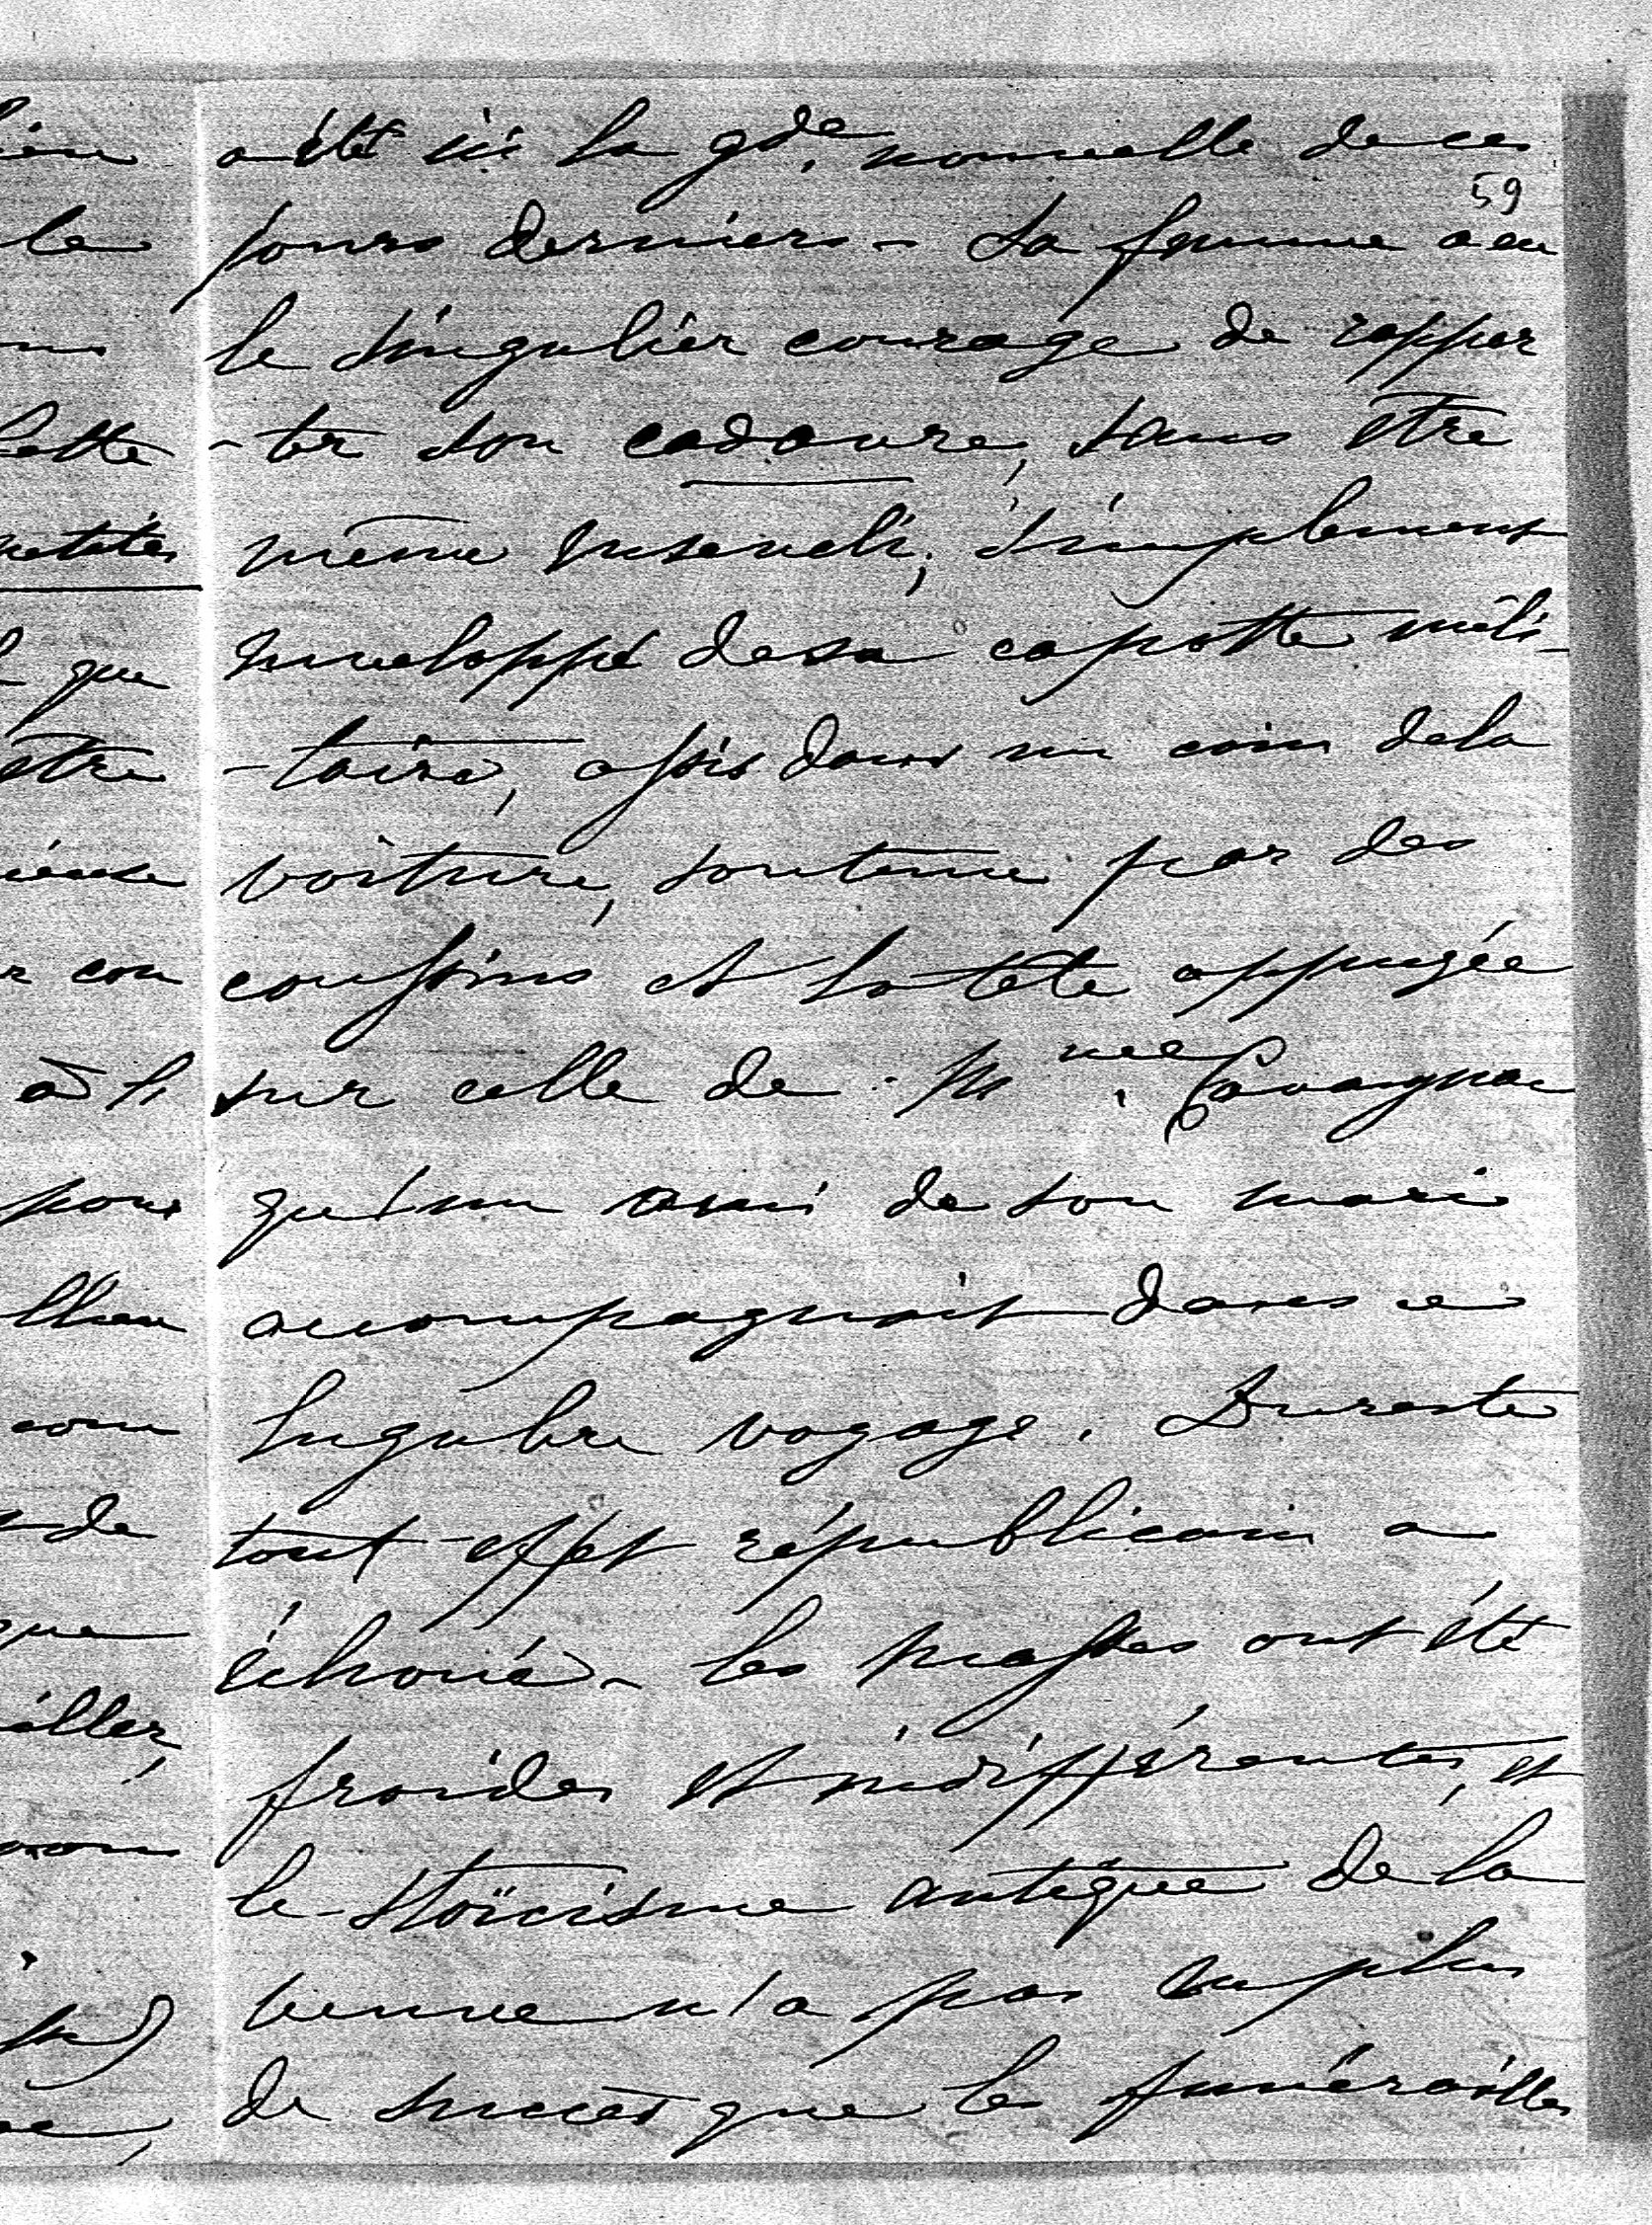 a été ici la gde. nouvelle de ces
59
jours derniers - Sa femme a eu
le singulier courage de rappor
-ter son cadavre, sans être
même enseveli; simplement
enveloppé de sa capotte mili-
-taire, assis dans un coin de la
voiture, soutenu par des
coussins et la tête appuyée
sur celle de Mme. Cavaignac
qu'un ami de son mari
accompagnait dans ce
lugubre voyage. Du reste
tout effet républicain a
échoué - les masses ont été
froides et indifférentes, et
le stoïcisme antique de la
veuve n'a pas eu plus
de succès que les funérailles
le
que
être
à
pour
com
de